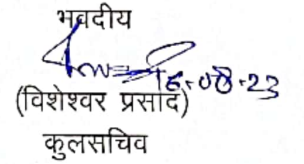 भवदीय
16-08-23
(विशेश्वर प्रसाद)
कुलसचिव